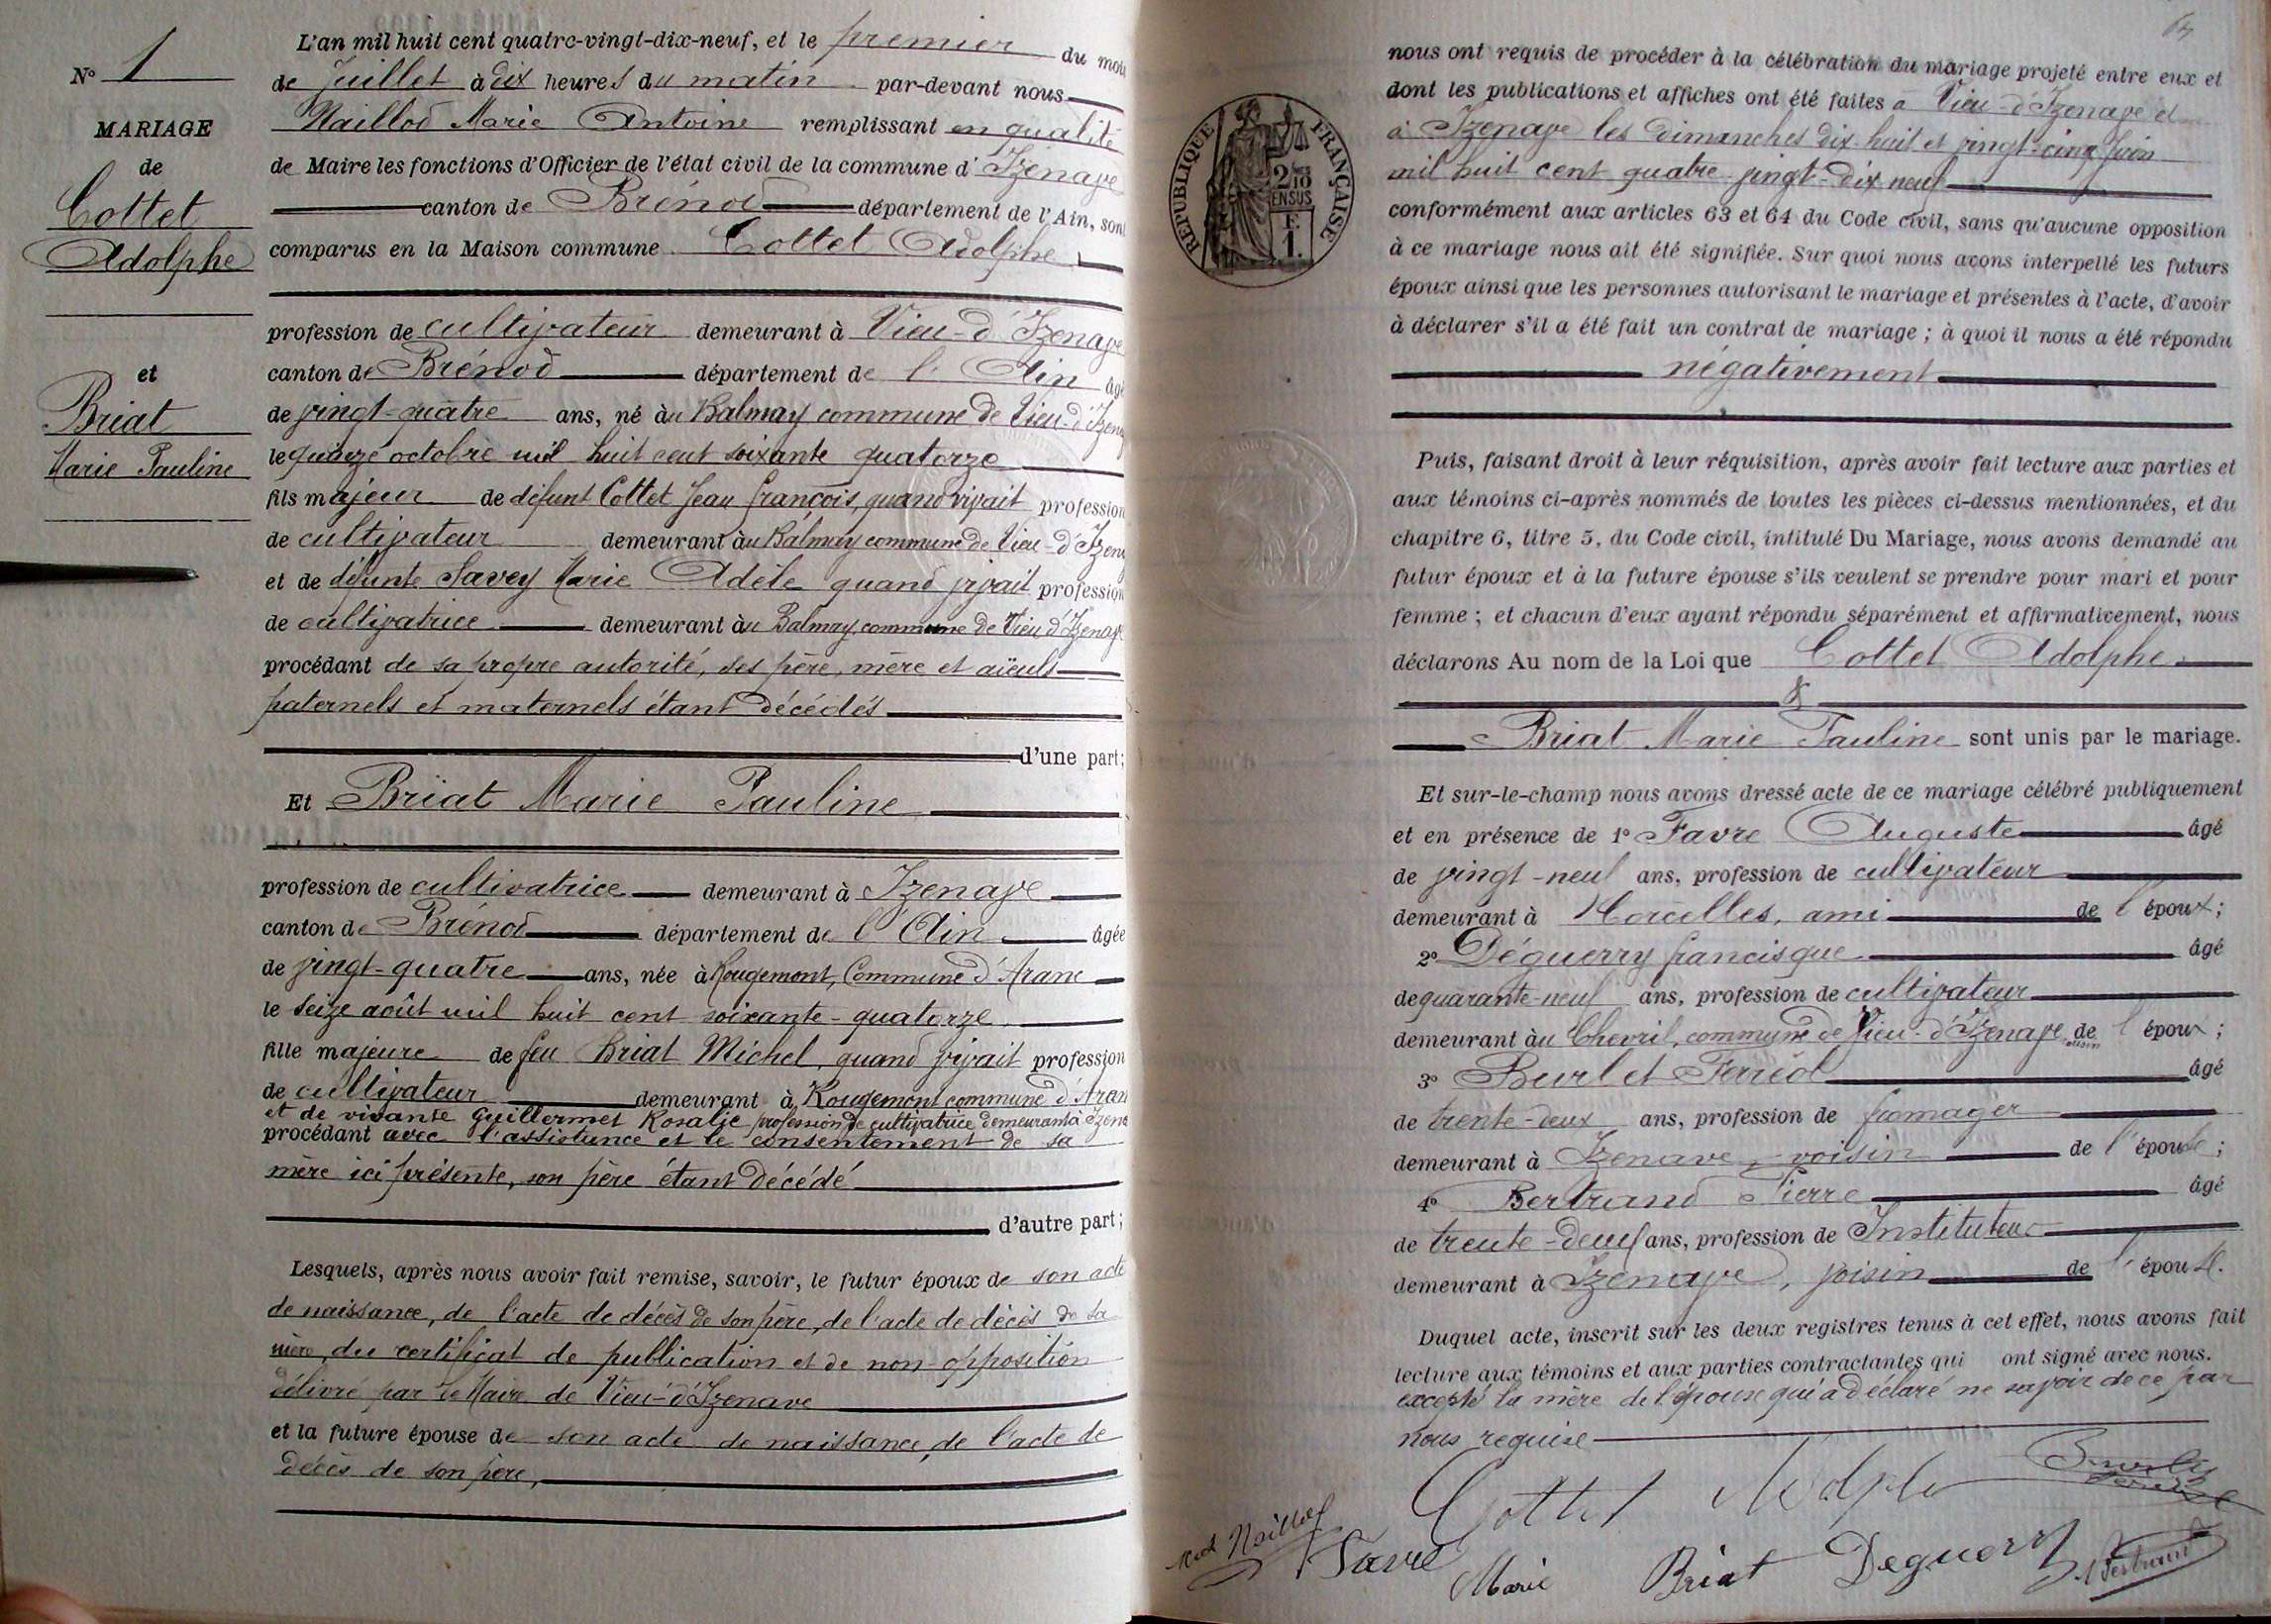 N° 1
MARIAGE
de
Cottet
Adolphe
et
Briat
Marie Pauline
L'an mil huit cent quatre-vingt-dix-neuf, et le premier du mois
de Juillet à dix heures du matin par-devant nous
Naillod Marie Antoine remplissant en qualité
de Maire les fonctions d'Officier de l'état civil de la commune d'Izenave
canton de Brénod département de l'Ain, sont
comparus en la Maison commune Cottet Adolphe
profession de cultivateur demeurant à Vieu-d'Izenave
canton de Brénod département de l'Ain âgé
de vingt-quatre ans, né au Balmay commune de Vieu-d'Izenave
le quinze octobre mil huit cent soixante quatorze
fils majeur de défunt Cottet Jean françois, quand vivait profession
de cultivateur demeurant au Balmay commune de Vieu-d'Izen
et de défunte Savey Marie Adèle quand vivait profession
de cultivatrice demeurant au Balmay commune de Vieu d'Izenave
procédant de sa propre autorité, ses père, mère et aïeuls
paternels et maternels étant décédés
d'une part;
Et Briat Marie Pauline
profession de cultivatrice demeurant à Izenave
canton de Brénod département de l'Ain âgée
de vingt-quatre ans, née à Rougemont, Commune d'Aranc
le seize août mil huit cent soixante-quatorze
fille majeure de feu Briat Michel, quand vivait profession
de cultivateur demeurant à Rougemont commune d'Aran
et de vivante Guillermet Rosalie profession de cultivatrice demeurant à Izena
procédant avec l'assistance et le consentement de sa
mère ici présente, son père étant décédé
d'autre part;
Lesquels, après nous avoir fait remise, savoir, le futur époux de son acte
de naissance, de l'acte de décès de son père, de l'acte de décès de sa
mère, du certificat de publication et de non-opposition
délivré par le Maire de Vieu-d'Izenave
et la future épouse de son acte de naissance, de l'acte de
décès de son père,
nous ont requis de procéder à la célébration du mariage projeté entre eux et
dont les publications et affiches ont été faites a Vieu-d'Izenave et
à Izenave les dimanches dix-huit et vingt-cinq juin
mil huit cent quatre-vingt-dix neuf
conformément aux articles 63 et 64 du Code civil, sans qu'aucune opposition
à ce mariage nous ait été signifiée. Sur quoi nous avons interpellé les futurs
époux ainsi que les personnes autorisant le mariage et présentes à l'acte, d'avoir
à déclarer s'il a été fait un contrat de mariage ; à quoi il nous a été répondu
négativement
RÉPUBLIQUE FRANÇAISE
2/10
EN SUS
F.
1.
Puis, faisant droit à leur réquisition, après avoir fait lecture aux parties et
aux témoins ci-après nommés de toutes les pièces ci-dessus mentionnées, et du
chapitre 6, titre 5, du Code civil, intitulé Du Mariage, nous avons demandé au
futur époux et à la future épouse s'ils veulent se prendre pour mari et pour
femme ; et chacun d'eux ayant répondu séparément et affirmativement, nous
déclarons Au nom de la Loi que Cottet Adolphe
&
Briat Marie Pauline sont unis par le mariage.
Et sur-le-champ nous avons dressé acte de ce mariage célébré publiquement
et en présence de 1° Favre Auguste âgé
de vingt-neuf ans, profession de cultivateur
demeurant à Corcelles, ami de l'époux;
2° Déguerry francisque âgé
de quarante-neuf ans, profession de cultivateur
demeurant au Chevril, commune de Vieu-d'Izenave, voisin de l'époux;
3° Burlet Faréol âgé
de trente-deux ans, profession de fromager
demeurant à Izenave, voisin de l'épouse;
4° Bertrand Pierre âgé
de trente-deux ans, profession de Instituteur
demeurant à Izenave, voisin de l'épouse.
Duquel acte, inscrit sur les deux registres tenus à cet effet, nous avons fait
lecture aux témoins et aux parties contractantes qui ont signé avec nous.
excepté la mère de l'épouse qui a déclaré ne savoir de ce par
nous requise
Cottet Adolphe
Naillod Favre Marie Briat Deguerry Bertrand